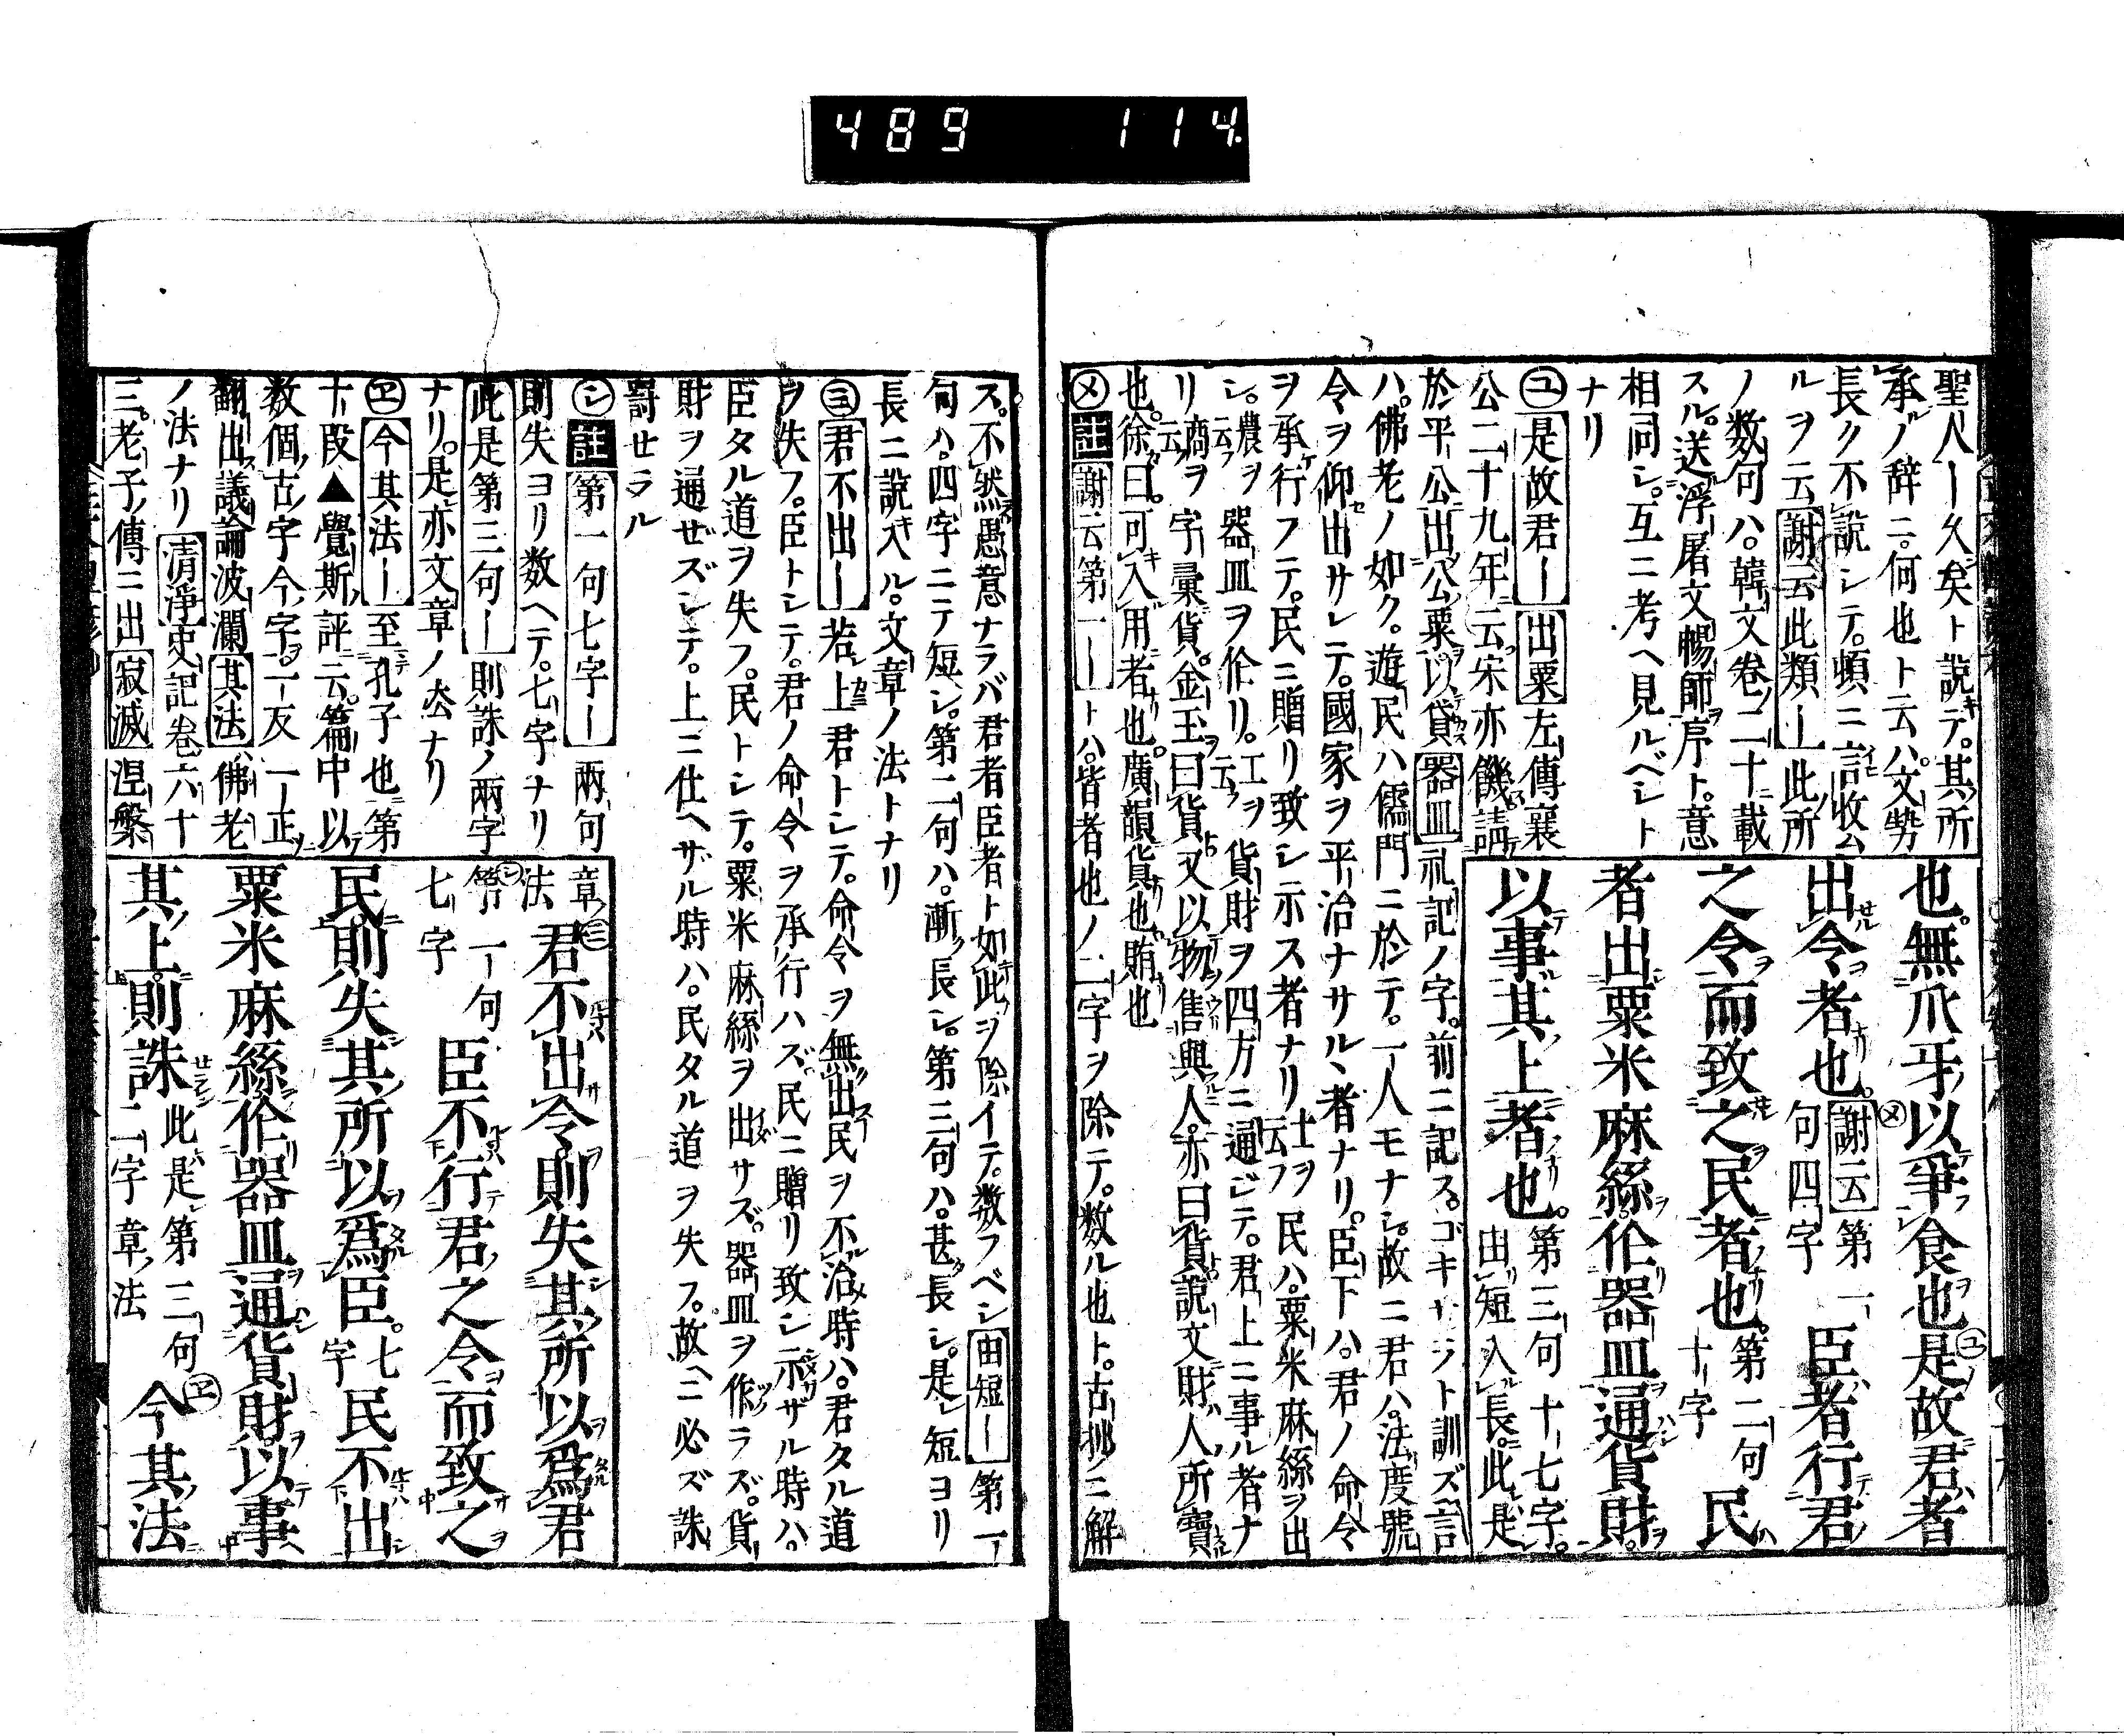 489 114
聖人ー久矣ト説テ。其所
承ノ辞ニ。何也ト云ハ。文勢
長ク不説シテ。頓ニ言収公
ルヲ云謝云此類ー此所
ノ数句ハ。韓文卷二十載
スル。送浮屠文暢師序ト。意
相同シ。互ニ考ヘ見ルベシト
ナリ
ユ是故君ー出粟左傳襄
公二十九年云宋亦饑請
於平公出公粟以貸器皿礼記ノ字。前ニ記ス。ゴキサラト訓ズ言
ハ。佛老ノ如ク。遊民ハ儒門ニ於テ。一人モナシ。故ニ君ハ。法度號
令ヲ仰出サレテ。國家ヲ平治ナサルヽ者ナリ。臣下ハ。君ノ命令
ヲ承行フテ。民ニ贈リ致シ示ス者ナリ士ヲ云フ民ハ。粟米麻絲ヲ出
シ。農ヲ云フ器皿ヲ作リ。工ヲ云フ貨財ヲ四方ニ通ジテ。君上ニ事ル者ナ
リ商ヲ云フ字彙貨。金玉曰貨又以物售與人亦曰貨説文財人所寳
也。徐曰。可入用者也。廣韻貨也賄也
メ註謝云第一ートハ。皆者也ノ二字ヲ除テ。数ル也ト。古抄ニ解
也。無爪牙以爭食也是故君者
出令者也。謝云第一句四字臣者行君
之令而致之民者也。第二句十字民
者出粟米麻絲作器皿通貨財。
以事其上者也。第三句十七字。由短入長。此是
ス。不然愚意ナラバ君者臣者ト如此ヲ除イテ。数フベシ由短ー第一
句ハ。四字ニテ短シ。第二句ハ。漸長シ。第三句ハ。甚長シ。是短ヨリ
長ニ説入ル。文章ノ法トナリ
ヨ君不出ー若上君トシテ。命令ヲ無出民ヲ不治時ハ。君タル道
ヲ失フ。臣トシテ。君ノ命令ヲ承行ハズ民ニ贈リ致シ示ザル時ハ。
臣タル道ヲ失フ。民トシテ。粟米麻絲ヲ出サズ。器皿ヲ作ラズ。貨
財ヲ通ゼズシテ。上ニ仕ヘザル時ハ。民タル道ヲ失フ。故ヘニ必ズ誅
罸セラル
シ註第一句七字ー兩句
則失ヨリ数ヘテ。七字ナリ
此是第三句ー則誅ノ兩字
ナリ。是亦文章ノ法ナリ
ヱ今其法ー至孔子也第
十段▲覺斯評云。篇中以
数個古字今字。一反一正
翻出議論波瀾其法佛老
ノ法ナリ清淨史記卷六十
三。老子傳ニ出寂滅涅槃
章法君不出令則失其所以爲君
第一句七字臣不行君之令而致之
民則失其所以爲臣。七字民不出
粟米麻絲作器皿通貨財。以事
其上則誅此是第三句二字章法今其法